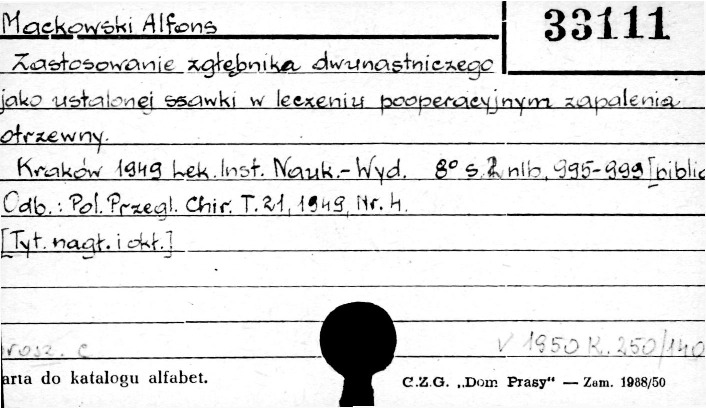 Mackowski Alfons
33111
Zastosowanie zgłębnika dwunastniczego
jako ustalonej ssawki w leczeniu pooperacyjnym zapalenia
otrzewny.
Kraków 1949 Lek. Inst. Nauk.-Wyd. 8° s. 2 nlb, 995-999 [biblio
Odb.: Pol. Przegl. Chir. T. 21, 1949, Nr. 4.
[Tyt. nagł. i okł.]
rosz. c V 1950 K. 250/140
arta do katalogu alfabet.
C.Z.G. „Dom Prasy" — Zam. 1988/50